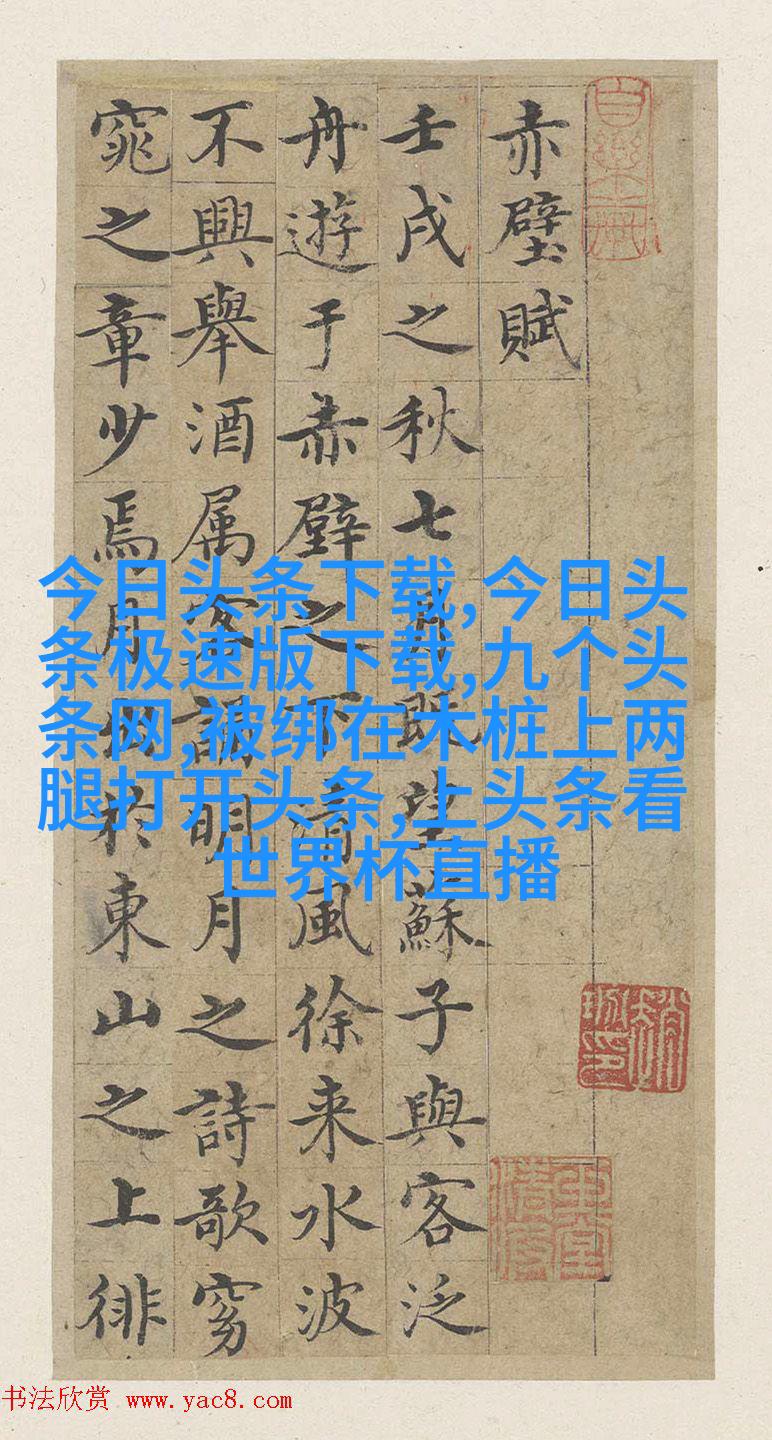 赤壁賦
壬戌之秋七月既望蘇子與客泛
舟遊于赤壁之下清風徐来水波
不興舉酒属客誦明月之詩歌窈
窕之章少焉月出於東山之上徘
今日头条下载,今日头
条极速版下载,九个头
条网,被绑在木桩上两
腿打开头条,上头条看
世界杯直播
书法欣赏 www.yac8.com